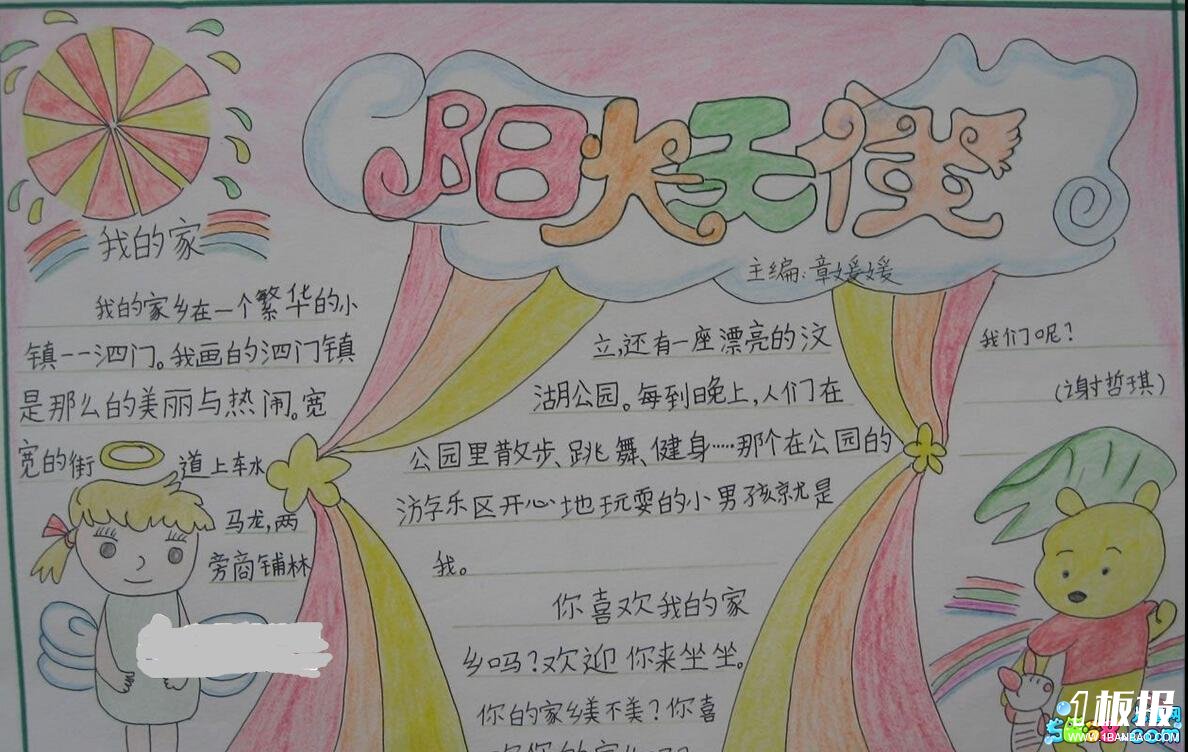 阳光天使
主编:章媛媛
我的家
我的家乡在一个繁华的小
镇——泗门。我画的泗门镇
是那么的美丽与热闹。宽
宽的街道上车水
马龙,两
旁商铺林
立,还有一座漂亮的汶
湖公园。每到晚上,人们在
公园里散步、跳舞、健身……那个在公园的
游乐区开心地玩耍的小男孩就是
我。
你喜欢我的家
乡吗?欢迎你来坐坐。
你的家乡美不美?你喜
我们呢?
(谢哲琪)
1板报
WWW.1BANBAO.COM